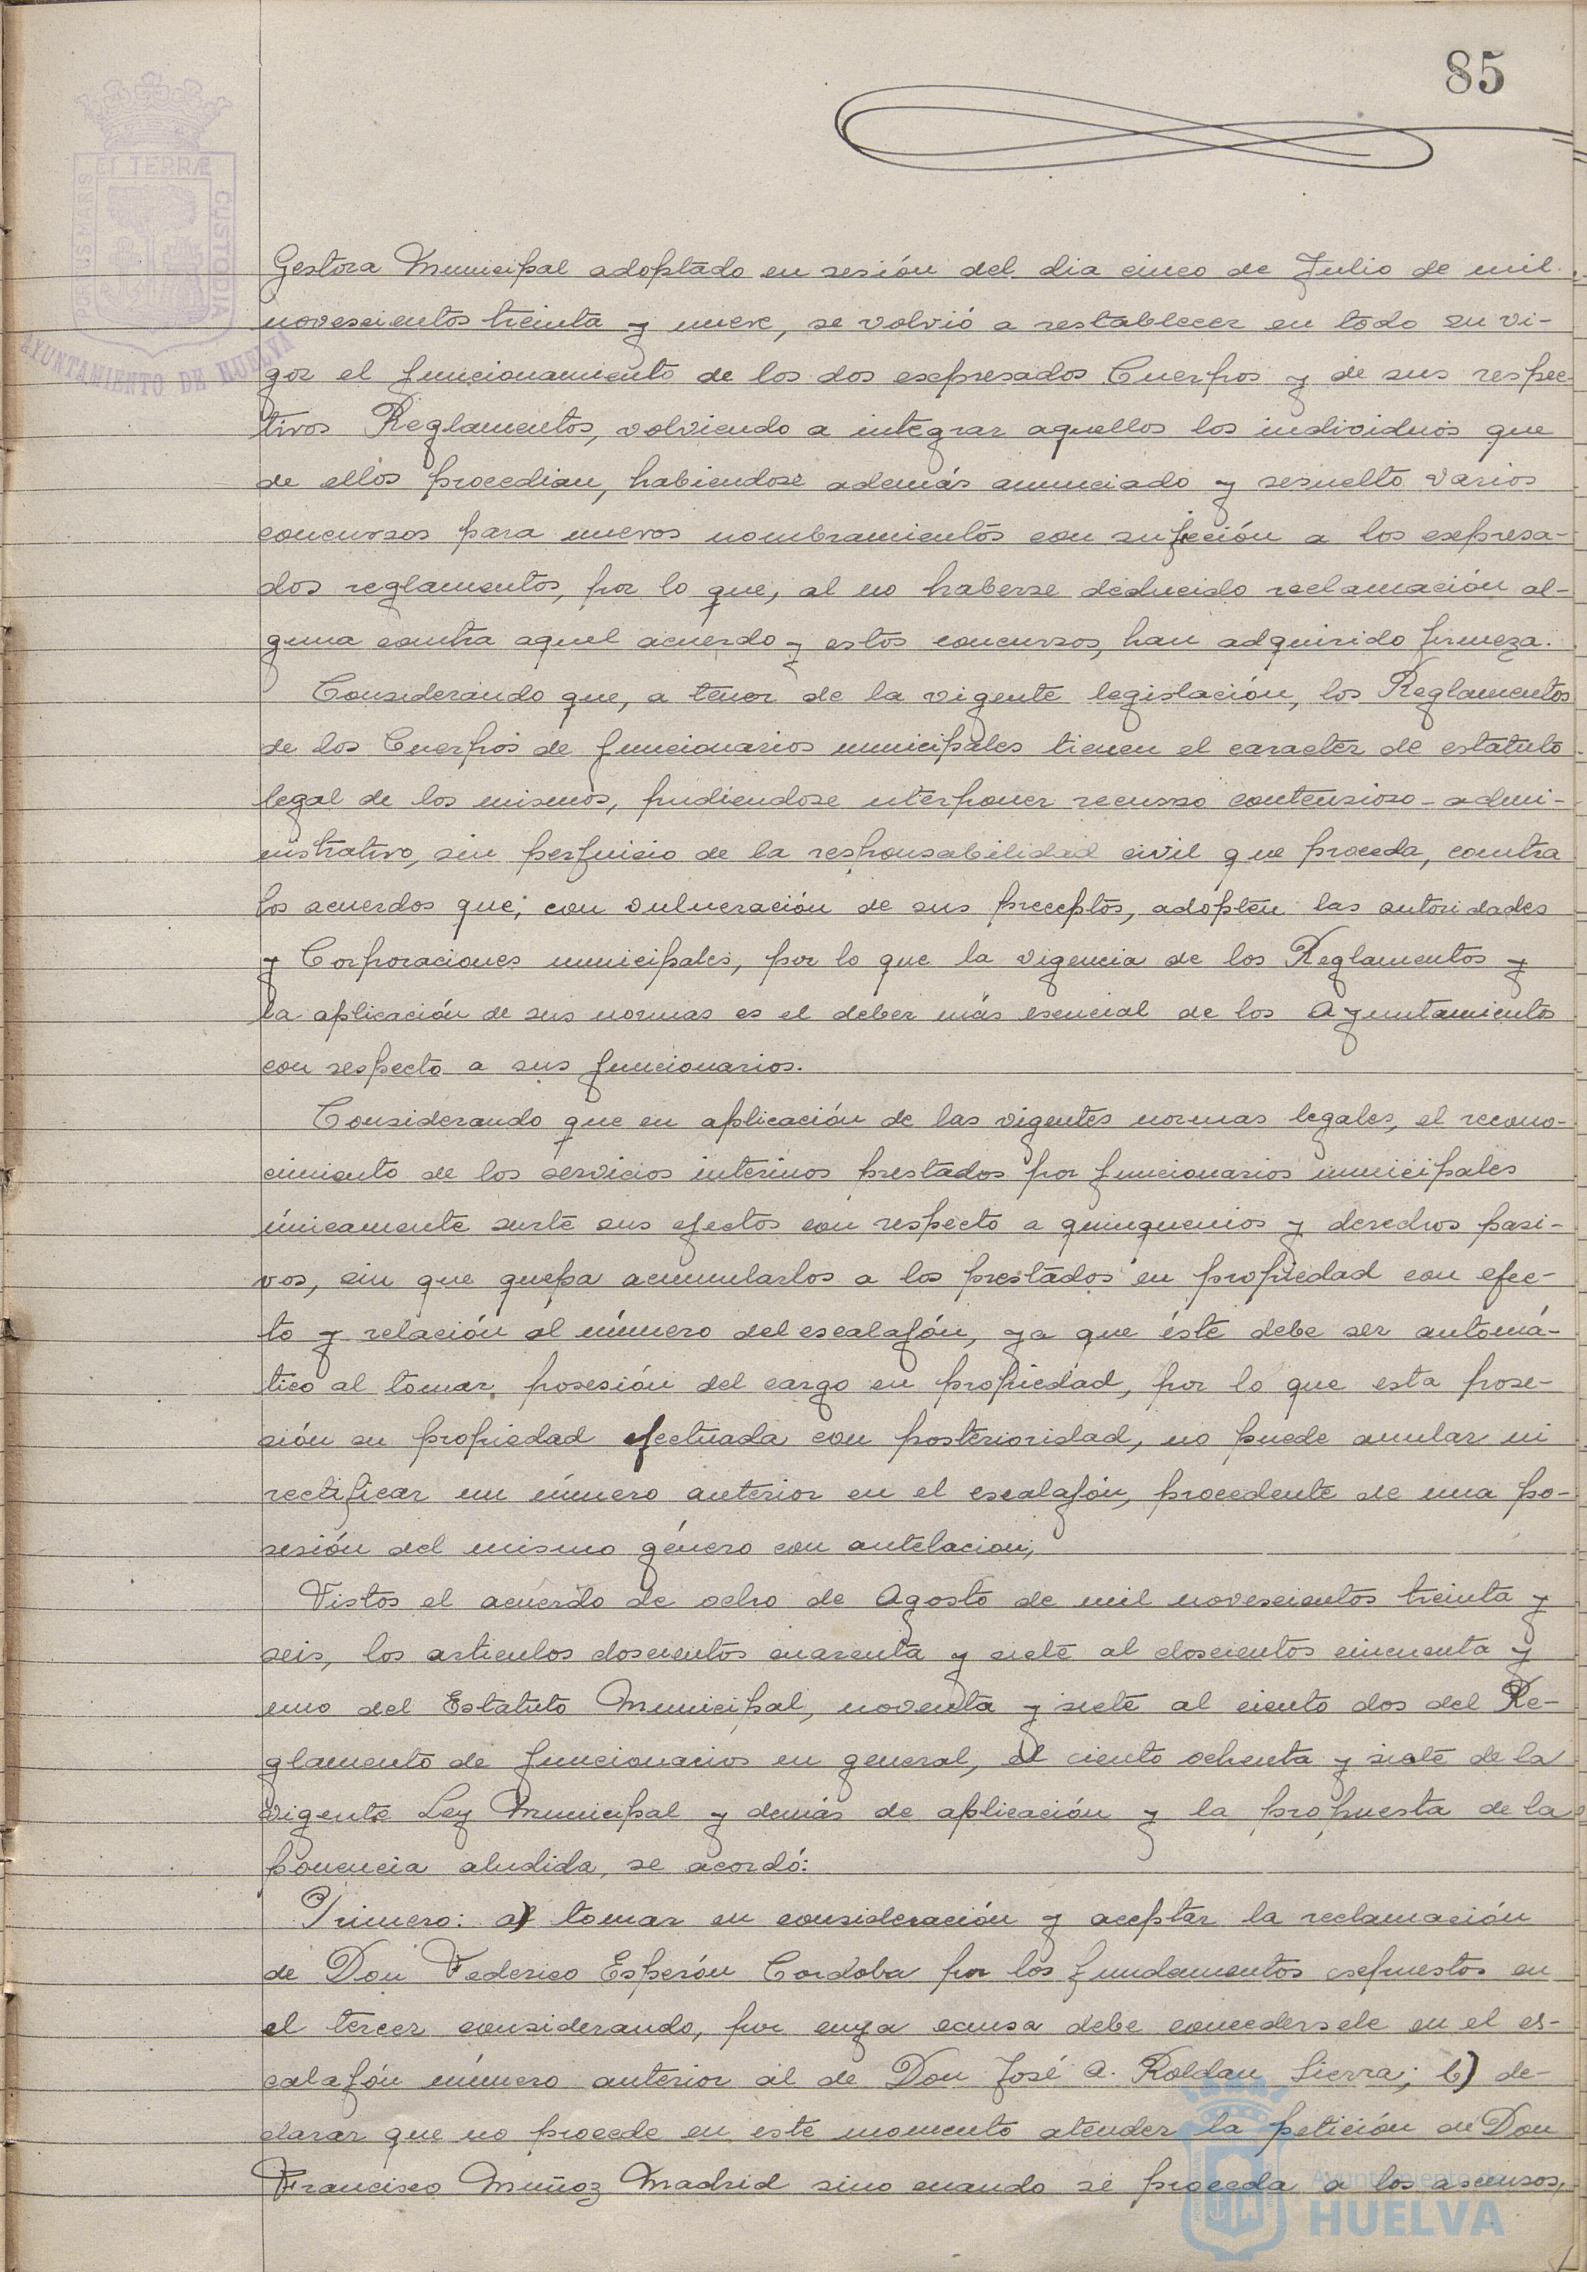 85
PORTUS MARIS ET TERRÆ CUSTODIA
AYUNTAMIENTO DE HUELVA
Gestora Municipal adoptado en sesión del dia cinco de Julio de mil
novescientos treinta y nueve, se volvió a restablecer en todo su vi-
gor el funcionamiento de los dos expresados Cuerpos y de sus respec-
tivos Reglamentos, volviendo a integrar aquellos los individuos que
de ellos procedian, habiendose además anunciado y resuelto varios
concursos para nuevos nombramientos con sujección a los expresa-
dos reglamentos, por lo que, al no haberse deducido reclamación al-
guna contra aquel acuerdo y estos concursos, han adquirido firmeza.
Considerando que, a tenor de la vigente legislación, los Reglamentos
de los Cuerpos de funcionarios municipales tienen el caracter de estatuto
legal de los mismos, pudiendose interponer recurso contensioso-admi-
nistrativo, sin perjuicio de la responsabilidad civil que proceda, contra
los acuerdos que, con vulneración de sus preceptos, adopten las autoridades
y Corporaciones municipales, por lo que la vigencia de los Reglamentos y
la aplicación de sus normas es el deber más esencial de los Ayuntamientos
con respecto a sus funcionarios.
Considerando que en aplicación de las vigentes normas legales, el recono-
cimiento de los servicios interinos prestados por funcionarios municipales
únicamente surte sus efectos con respecto a quinquenios y derechos pasi-
vos, sin que quepa acumularlos a los prestados en propiedad con efec-
to y relación al número del escalafón, ya que éste debe ser automá-
tico al tomar posesión del cargo en propiedad, por lo que esta pose-
sión en propiedad efectuada con posterioridad, no puede anular ni
rectificar un número anterior en el escalafón, procedente de una po-
sesión del mismo género con antelacion;
Vistos el acuerdo de ocho de Agosto de mil novescientos treinta y
seis, los articulos doscientos cuarenta y siete al doscientos cincuenta y
uno del Estatuto Municipal, noventa y siete al ciento dos del Re-
glamento de funcionarios en general, el ciento ochenta y siete de la
vigente Ley Municipal y demás de aplicación y la propuesta de la
ponencia aludida, se acordó:
Primero: a) tomar en consideración y aceptar la reclamación
de Don Federico Esperón Cordoba por los fundamentos expuestos en
el tercer considerando, por cuya causa debe concedersele en el es-
calafón número anterior al de Don José A. Roldan Sierra; b) de-
clarar que no procede en este momento atender la petición de Don
Francisco Muñoz Madrid sino cuando se proceda a los ascensos,
Ayuntamiento de
HUELVA